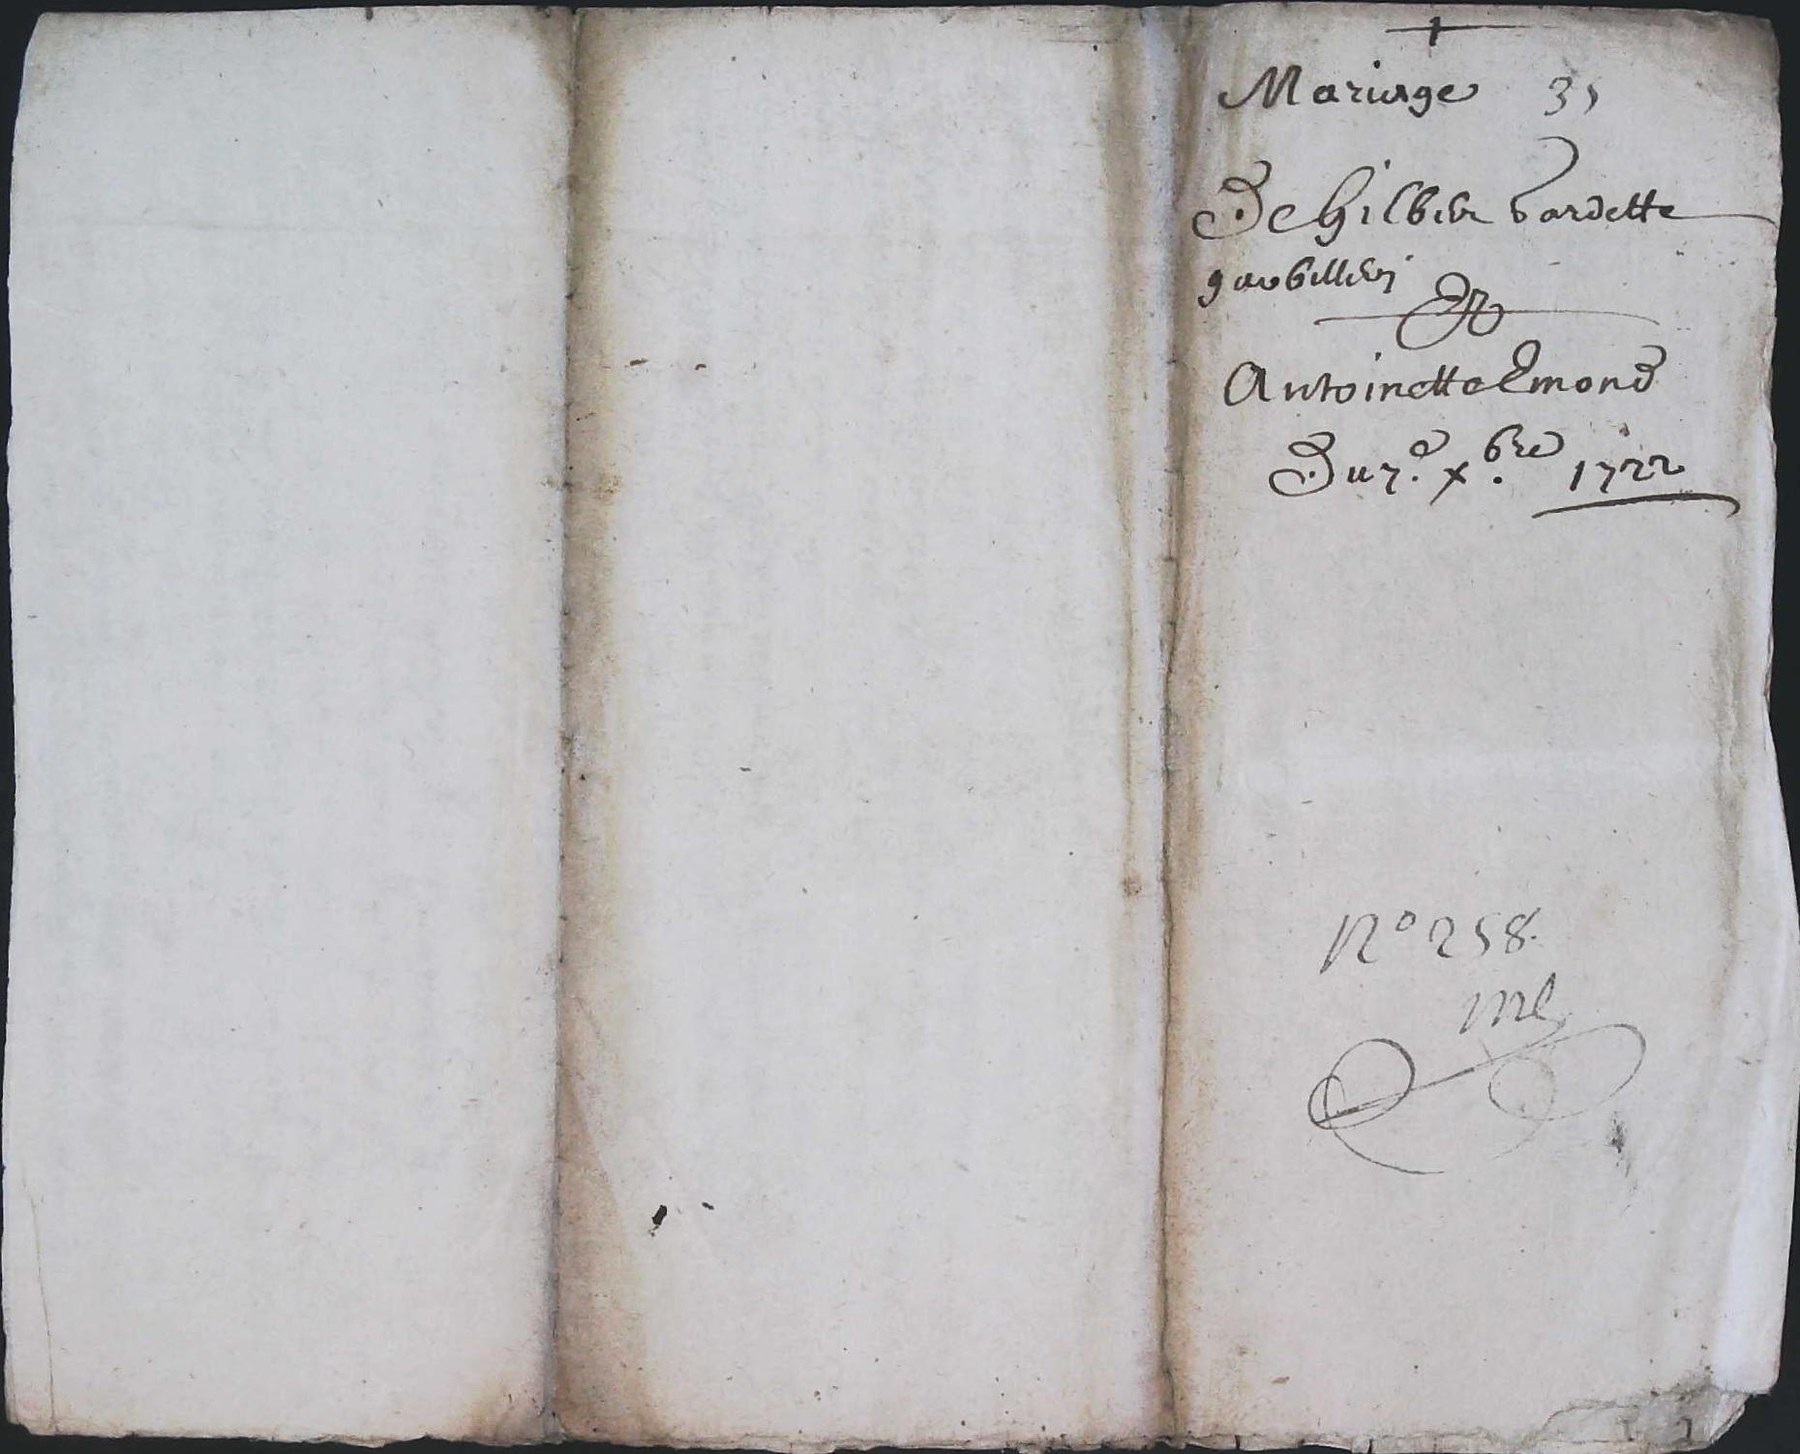 Mariage 35
De Gilber bardette
gaubellier
Et
Antoinette Emond
Du 7.e xbre. 1722
No 258.